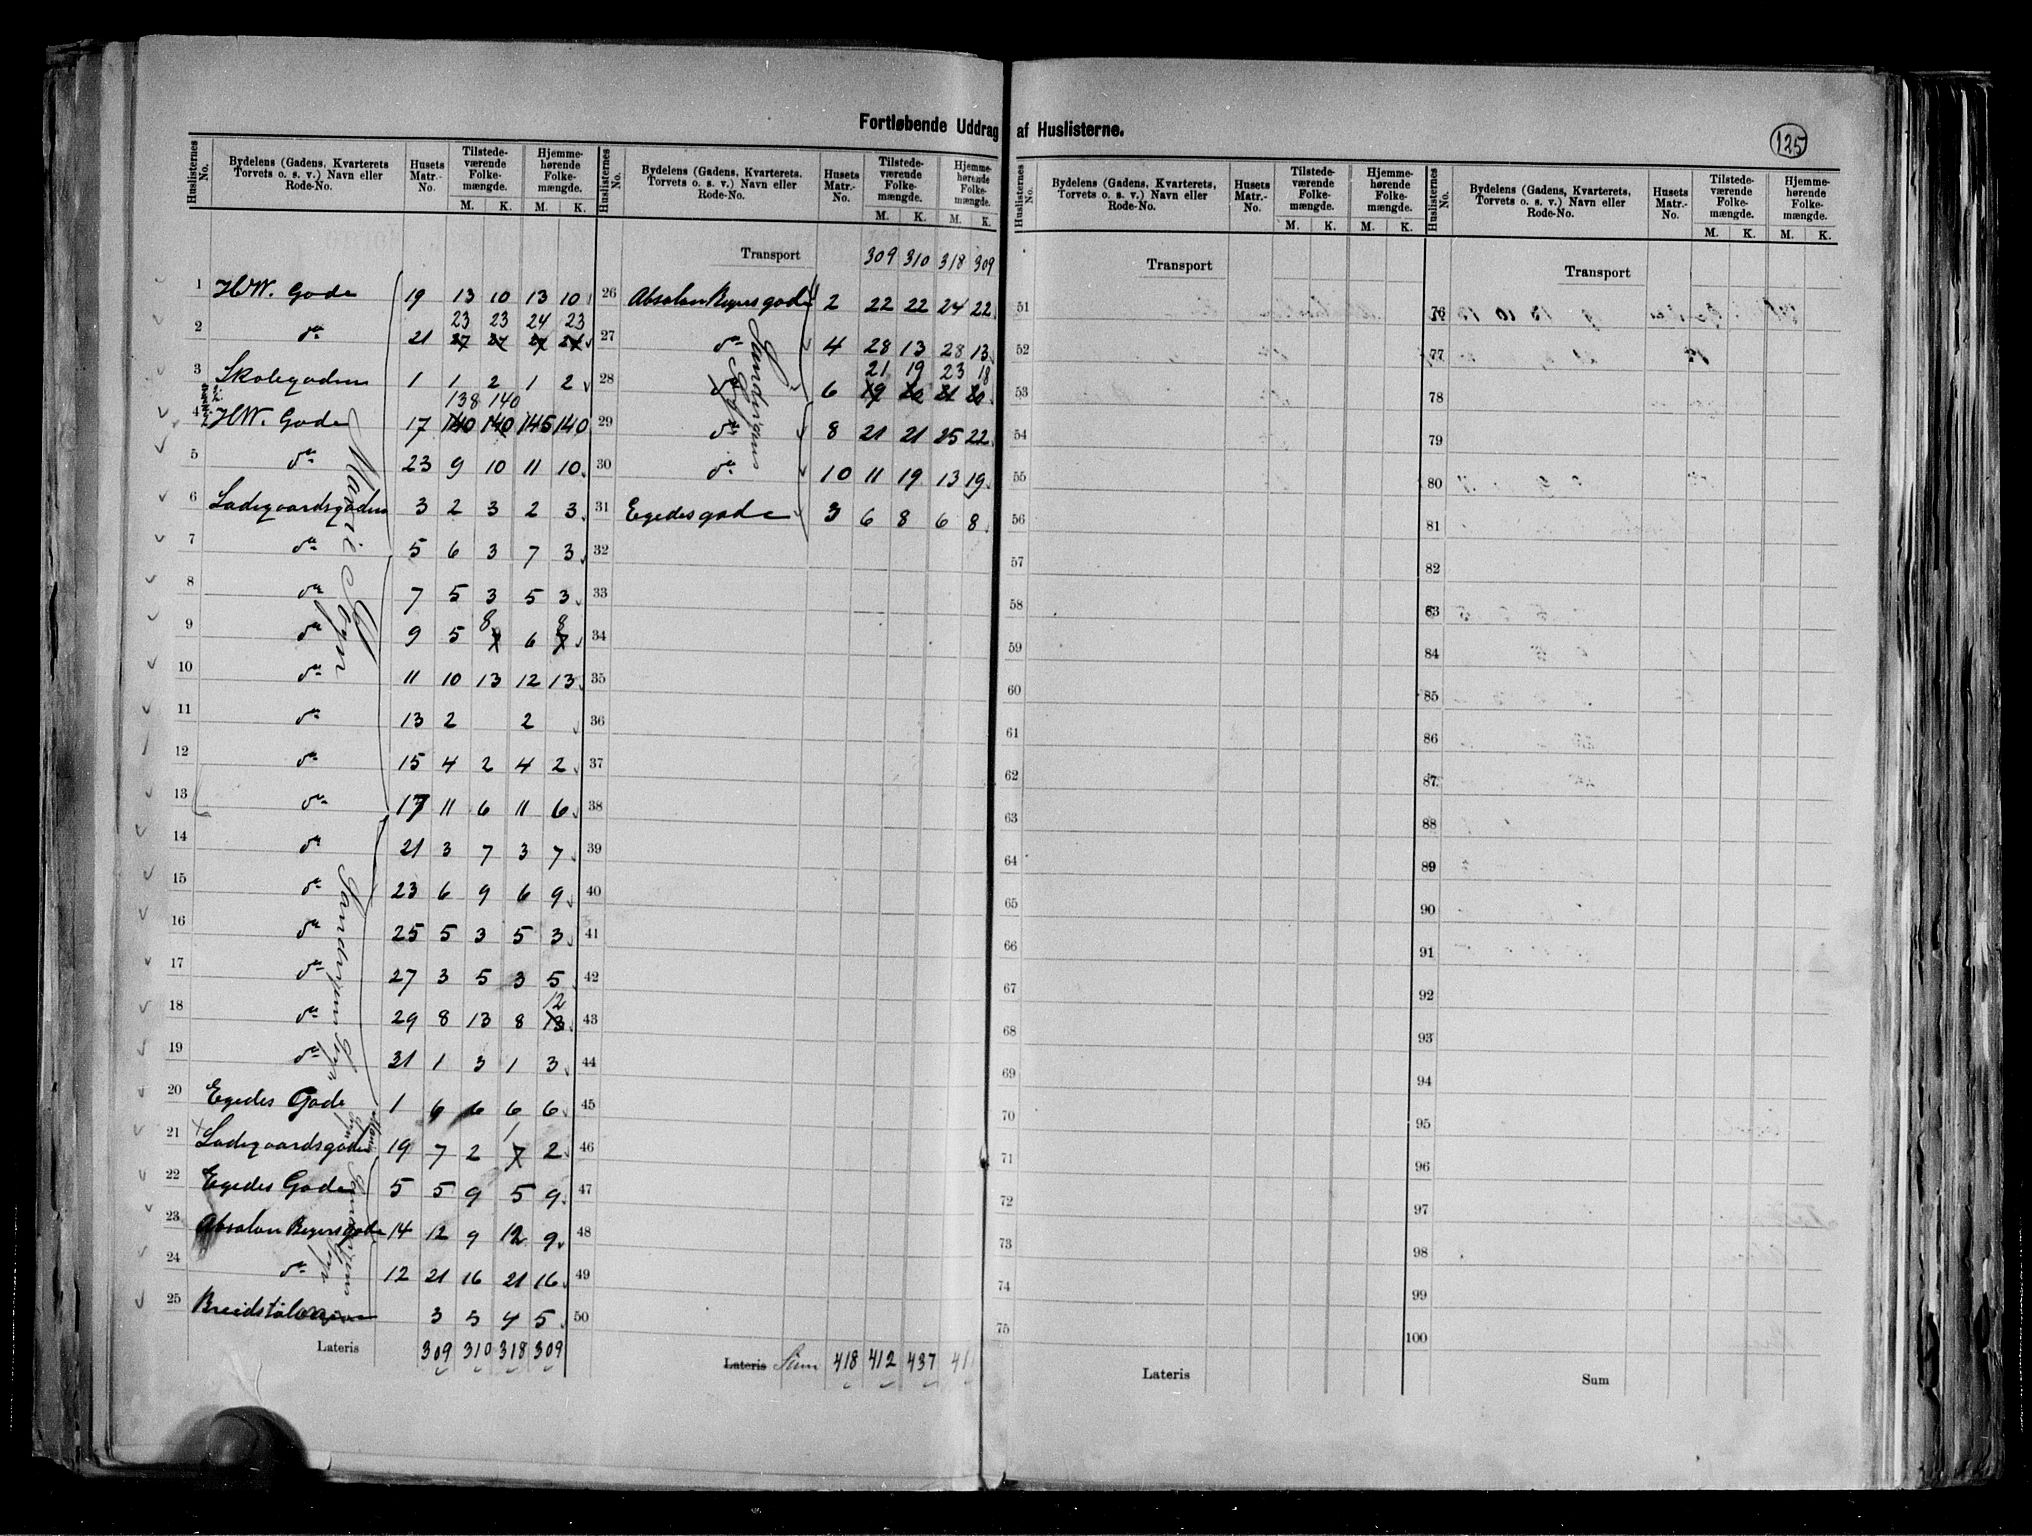 Fortløbende Uddrag af Huslisterne.
125
Huslisternes No. | Bydelens (Gadens, Kvarterets Torvets o. s. v.) Navn eller Rode-No. | Husets Matr.-No. | Tilstede-værende Folke-mængde. M. K. | Hjemme-hørende Folke-mængde. M. K.
1 H.W. Gade 19 13 10 13 10
23 23 24 23
2 do 21 27 27 27 24
3 Skolegaden 1 1 2 1 2
138 140
4 H.W. Gade 17 140 140 145 140
5 do 23 9 10 11 10
6 Ladegaardsgaden 3 2 3 2 3
7 do 5 6 3 7 3
8 do 7 5 3 5 3
8 8
9 do 9 5 7 6 7
10 do 11 10 13 12 13
11 do 13 2 2
12 do 15 4 2 4 2
13 do 17 11 6 11 6
Marie Sogn
14 do 21 3 7 3 7
15 do 23 6 9 6 9
16 do 25 5 3 5 3
17 do 27 3 5 3 5
12
18 do 29 8 13 8 13
19 do 31 1 3 1 3
Sandvigens Sogn
20 Egedes Gade 1 6 6 6 6
21 Ladegaardsgaden 19 7 2 7 2
Marie Sogn
22 Egedes Gade 5 5 9 5 9
23 Absalon Beyersgade 14 12 9 12 9
24 do 12 21 16 21 16
Sandvigens Sogn
25 Breidstølen 3 5 4 5
Lateris 309 310 318 309
Huslisternes No. | Bydelens (Gadens, Kvarterets, Torvets o. s. v.) Navn eller Rode-No. | Husets Matr.-No. | Tilstede-værende Folke-mængde. M. K. | Hjemme-hørende Folke-mængde. M. K.
Transport 309 310 318 309
26 Absalon Beyersgade 2 22 22 24 22
27 do 4 28 13 28 13
21 19 23 18
28 do 6 19 20 21 20
29 do 8 21 21 25 22
30 do 10 11 19 13 19
31 Egedesgade 3 6 8 6 8
Sandvigens Sogn
32
33
34
35
36
37
38
39
40
41
42
43
44
45
46
47
48
49
50
Lateris Sum 418 412 437
Huslisternes No. | Bydelens (Gadens, Kvarterets, Torvets o. s. v.) Navn eller Rode-No. | Husets Matr.-No. | Tilstede-værende Folke-mængde. M. K. | Hjemme-hørende Folke-mængde. M. K.
Transport
51
52
53
54
55
56
57
58
59
60
61
62
63
64
65
66
67
68
69
70
71
72
73
74
75
Lateris
Huslisternes No. | Bydelens (Gadens, Kvarterets, Torvets o. s. v.) Navn eller Rode-No. | Husets Matr.-No. | Tilstede-værende Folke-mængde. M. K. | Hjemme-hørende Folke-mængde. M. K.
Transport
76
77
78
79
80
81
82
83
84
85
86
87
88
89
90
91
92
93
94
95
96
97
98
99
100
Sum